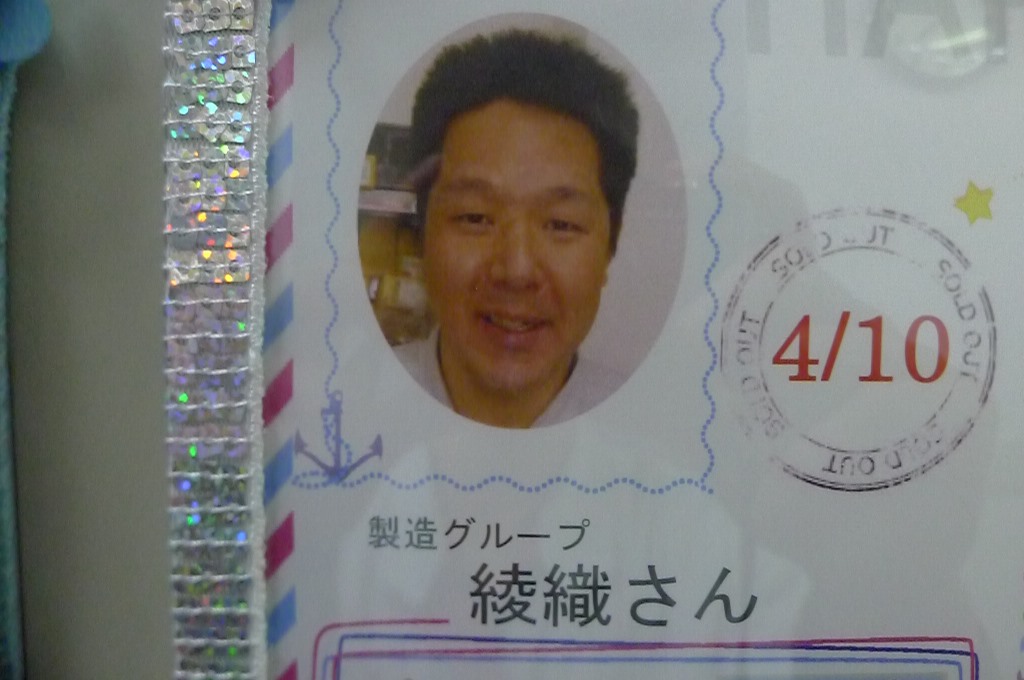 SOLD OUT
SOLD OUT
SOLD OUT
SOLD OUT
4/10
製造グループ
綾織さん